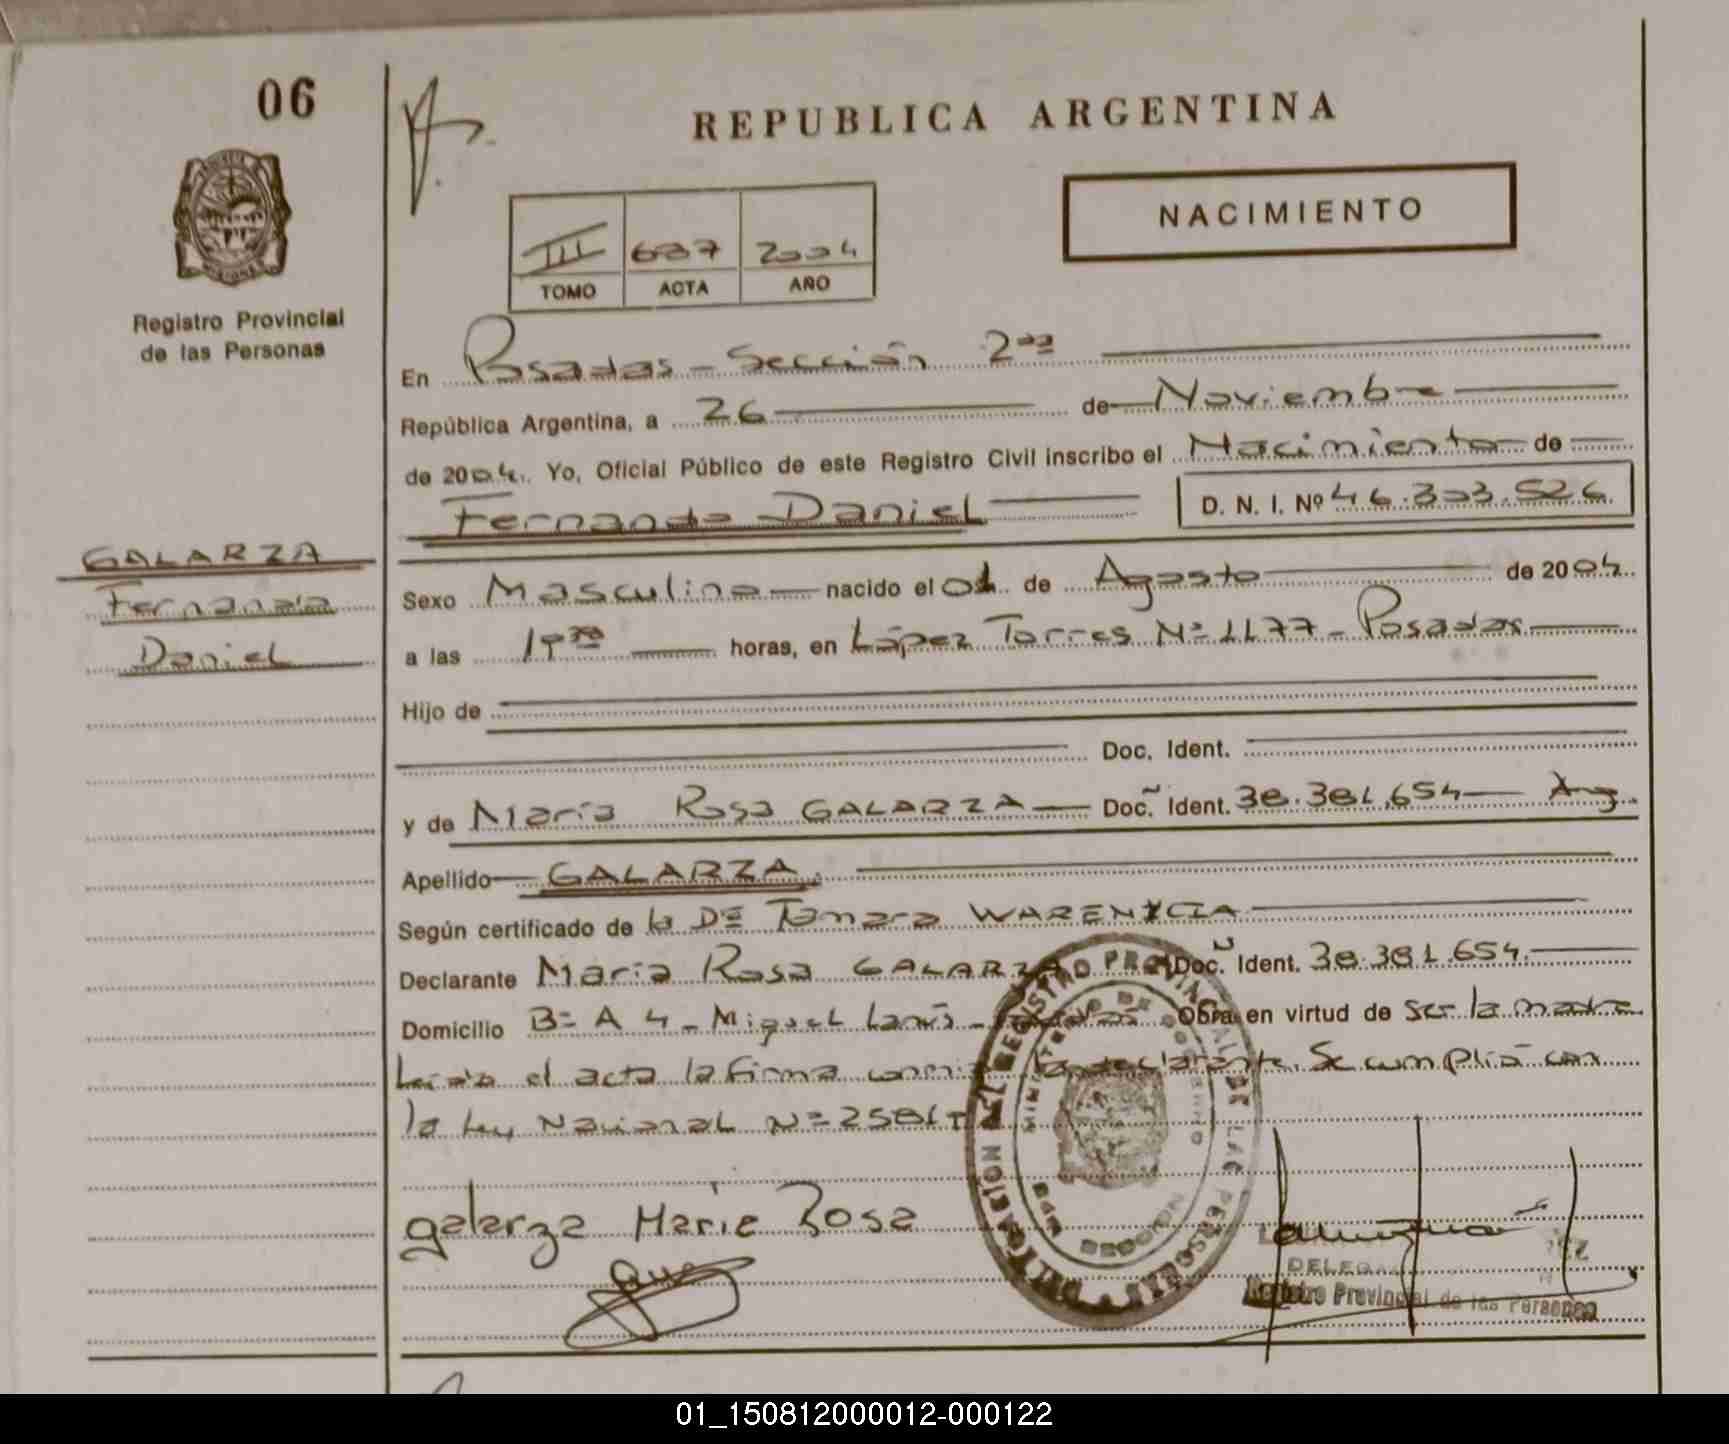 06
REPUBLICA ARGENTINA
NACIMIENTO
III 687 2004
TOMO ACTA AÑO
Registro Provincial
de las Personas
En Posadas - Sección 2da
República Argentina, a 26 de Noviembre
de 2004. Yo, Oficial Público de este Registro Civil inscribo el Nacimiento de
Fernando Daniel D. N. I. Nº 46.303.526
GALARZA
Fernando
Daniel
Sexo Masculino nacido el 01 de Agosto de 2004
a las horas, en López Torres Nº 1177 - Posadas
Hijo de
Doc. Ident.
y de María Rosa GALARZA Doc. Ident. 38.381.654 Arg.
Apellido GALARZA.
Según certificado de la Dra Tamara WARENYCIA
Declarante María Rosa GALARZA Doc. Ident. 38.381.654.
Domicilio Bº A 4 - Miguel Lanús - Posadas Obra en virtud de ser la madre
Leída el acta la firma conmigo la declarante. Se cumplió con
la Ley Nacional Nº
galarza Marie Rosa
DELEG
Registro Provincial de las Personas
01_150812000012-000122